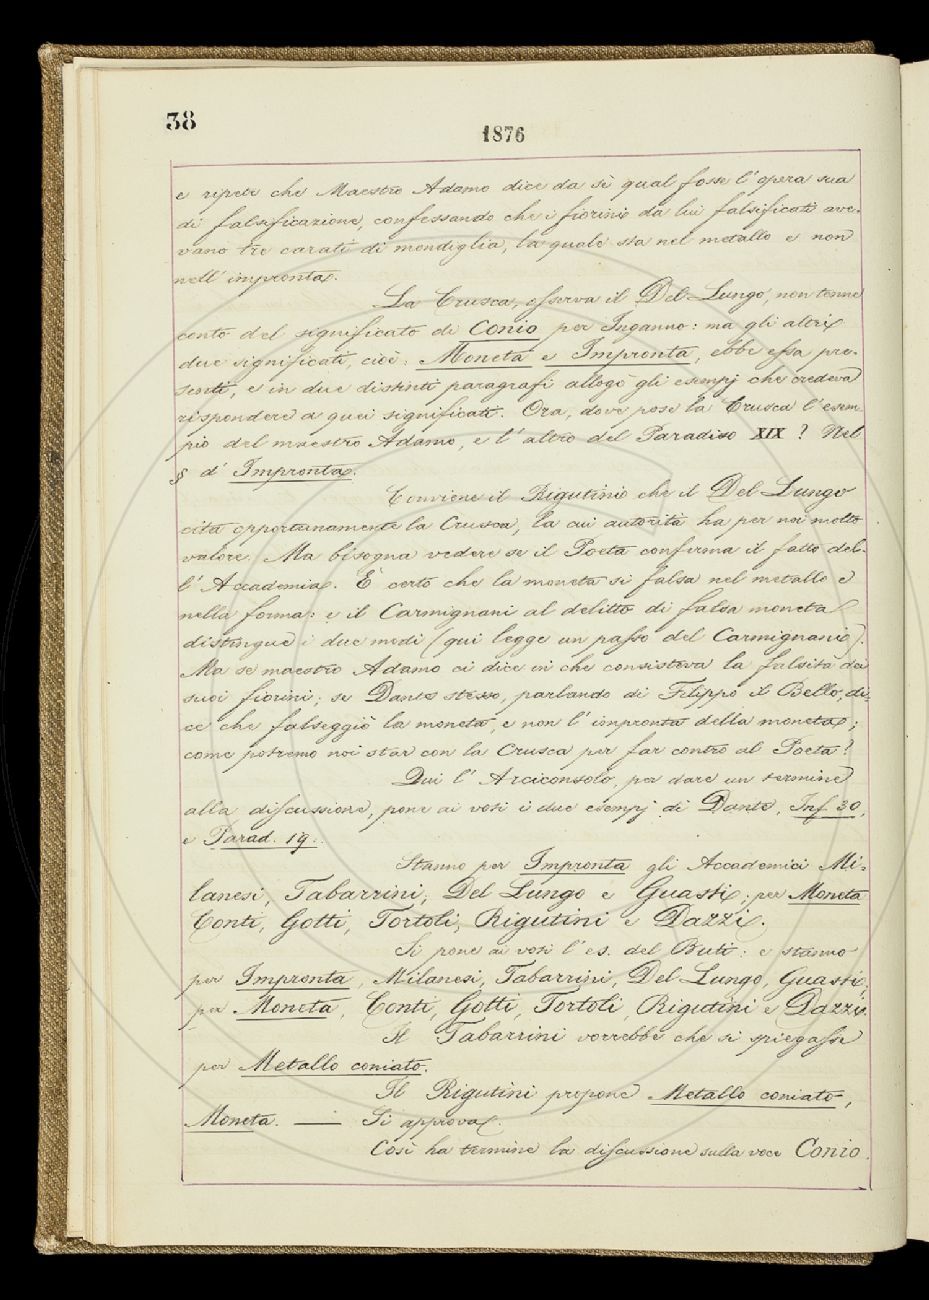 38
1876
e ripete che Maestro Adamo dice da sè qual fosse l'opera sua
di falsificazione, confessando che i fiorini da lui falsificati ave-
vano tre carati di mondiglia, la quale sta nel metallo e non
nell'impronta.
La Crusca, osserva il Del Lungo, non tenne
conto del significato di Conio per Inganno: ma gli altri
due significati, cioè: Moneta e Impronta, ebbe essa pre-
senti, e in due distinti paragrafi allogò gli esempj che credeva
rispondere a quei significati. Ora, dove pose la Crusca l'esem
pio del maestro Adamo, e l'altro del Paradiso XIX? Nel
§ d'Impronta.
Conviene il Rigutini che il Del Lungo
cita opportunamente la Crusca, la cui autorità ha per noi molto
valore. Ma bisogna vedere se il Poeta conferma il fatto del-
l'Accademia. È certo che la moneta si falsa nel metallo e
nella forma: e il Carmignani al delitto di falsa moneta
distingue i due modi (qui legge un passo del Carmignani).
Ma se maestro Adamo ci dice in che consisteva la falsità dei
suoi fiorini; se Dante stesso, parlando di Filippo il Bello, di-
ce che falseggiò la moneta, e non l'impronta della moneta;
come potremo noi star con la Crusca per far contro al Poeta?
Qui l'Arciconsolo, per dare un termine
alla discussione, pone ai voti i due esempj di Dante, Inf. 30,
e Parad. 19.
Stanno per Impronta gli Accademici Mi-
lanesi, Tabarrini, Del Lungo e Guasti; per Moneta
Conti, Gotti, Tortoli, Rigutini e Dazzi.
Si pone ai voti l'es. del Buti: e stanno
per Impronta, Milanesi, Tabarrini, Del Lungo, Guasti;
per Moneta, Conti, Gotti, Tortoli, Rigutini e Dazzi.
Il Tabarrini vorrebbe che si spiegasse
per Metallo coniato.
Il Rigutini propone Metallo coniato,
Moneta. — Si approva.
Così ha termine la discussione sulla voce Conio.